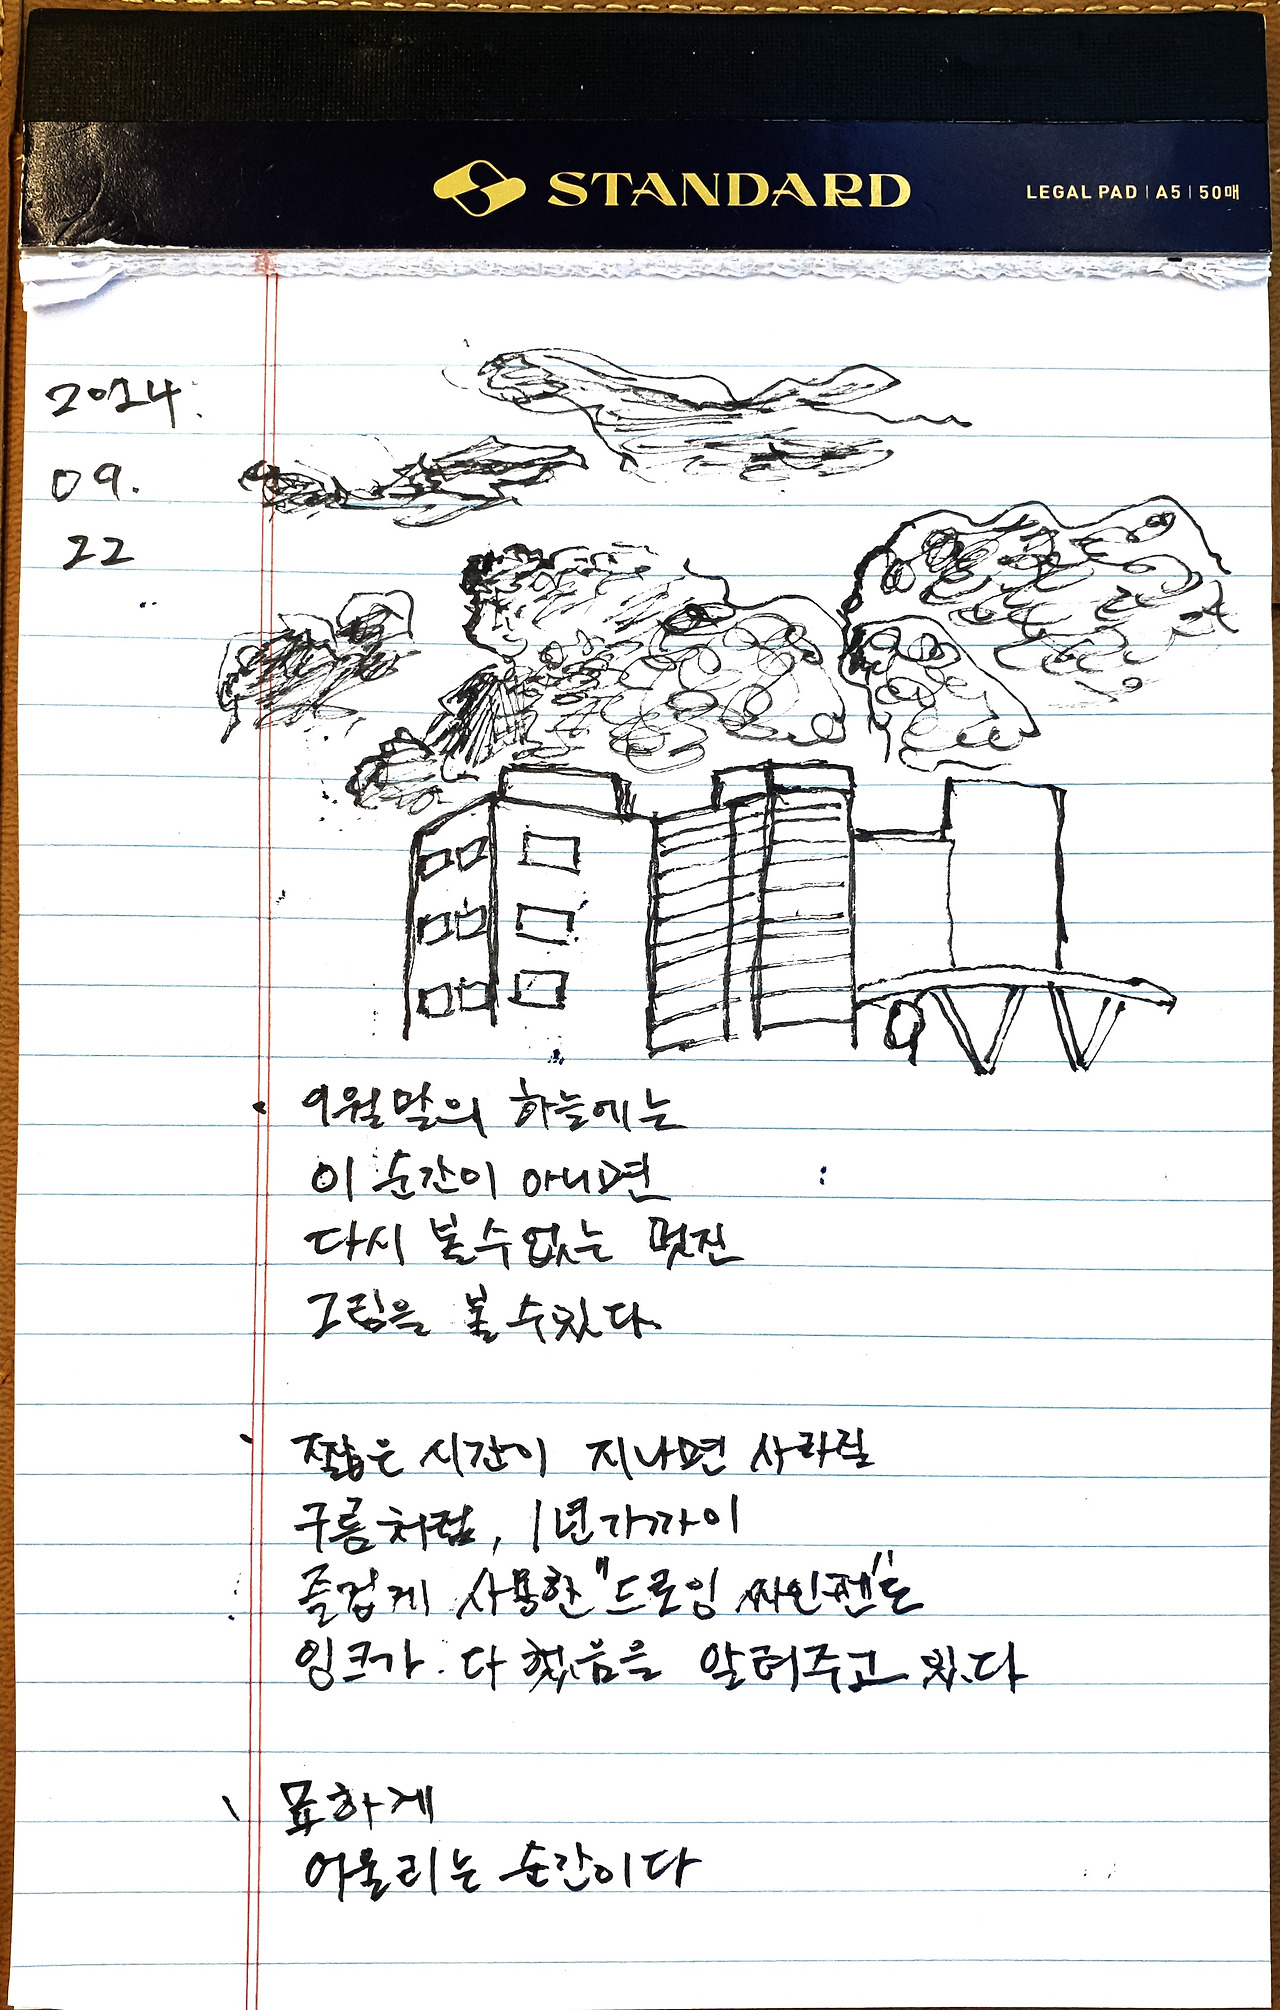 STANDARD
LEGAL PAD | A5 | 50매
2024.
09.
22
9월말의 하늘에는
이 순간이 아니면
다시 볼수없는 멋진
그림을 볼 수있다.
짧은 시간이 지나면 사라질
구름처럼, 1년가까이
즐겁게 사용한 "드로잉 싸인펜"도
잉크가 다 했음을 알려주고 있다
묘하게
어울리는 순간이다